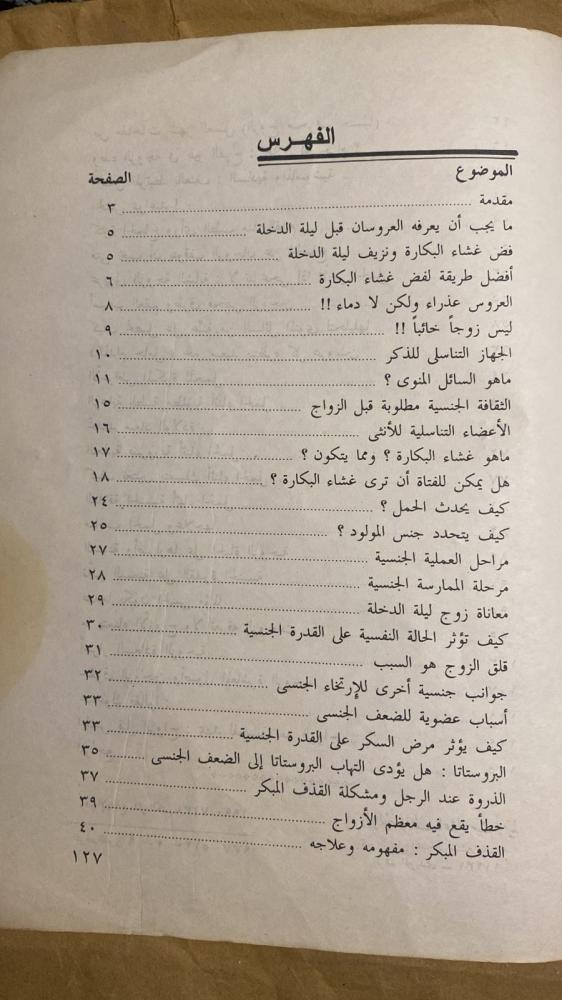 الفهرس
الموضوع الصفحة
مقدمة ........ ٣
ما يجب أن يعرفه العروسان قبل ليلة الدخلة ........ ٥
فض غشاء البكارة ونزيف ليلة الدخلة ........ ٥
أفضل طريقة لفض غشاء البكارة ........ ٦
العروس عذراء ولكن لا دماء !! ........ ٨
ليس زوجاً خائباً !! ........ ٩
الجهاز التناسلى للذكر ........ ١٠
ماهو السائل المنوى ؟ ........ ١١
الثقافة الجنسية مطلوبة قبل الزواج ........ ١٥
الأعضاء التناسلية للأنثى ........ ١٦
ماهو غشاء البكارة ؟ ومما يتكون ؟ ........ ١٧
هل يمكن للفتاة أن ترى غشاء البكارة ؟ ........ ١٨
كيف يحدث الحمل ؟ ........ ٢٤
كيف يتحدد جنس المولود ؟ ........ ٢٥
مراحل العملية الجنسية ........ ٢٧
مرحلة الممارسة الجنسية ........ ٢٨
معاناة زوج ليلة الدخلة ........ ٢٩
كيف تؤثر الحالة النفسية على القدرة الجنسية ........ ٣٠
قلق الزوج هو السبب ........ ٣١
جوانب جنسية أخرى للإرتخاء الجنسى ........ ٣٢
أسباب عضوية للضعف الجنسى ........ ٣٣
كيف يؤثر مرض السكر على القدرة الجنسية ........ ٣٣
البروستاتا : هل يؤدى التهاب البروستاتا إلى الضعف الجنسى ........ ٣٥
الذروة عند الرجل ومشكلة القذف المبكر ........ ٣٧
خطأ يقع فيه معظم الأزواج ........ ٣٩
القذف المبكر : مفهومه وعلاجه ........ ٤٠
١٢٧